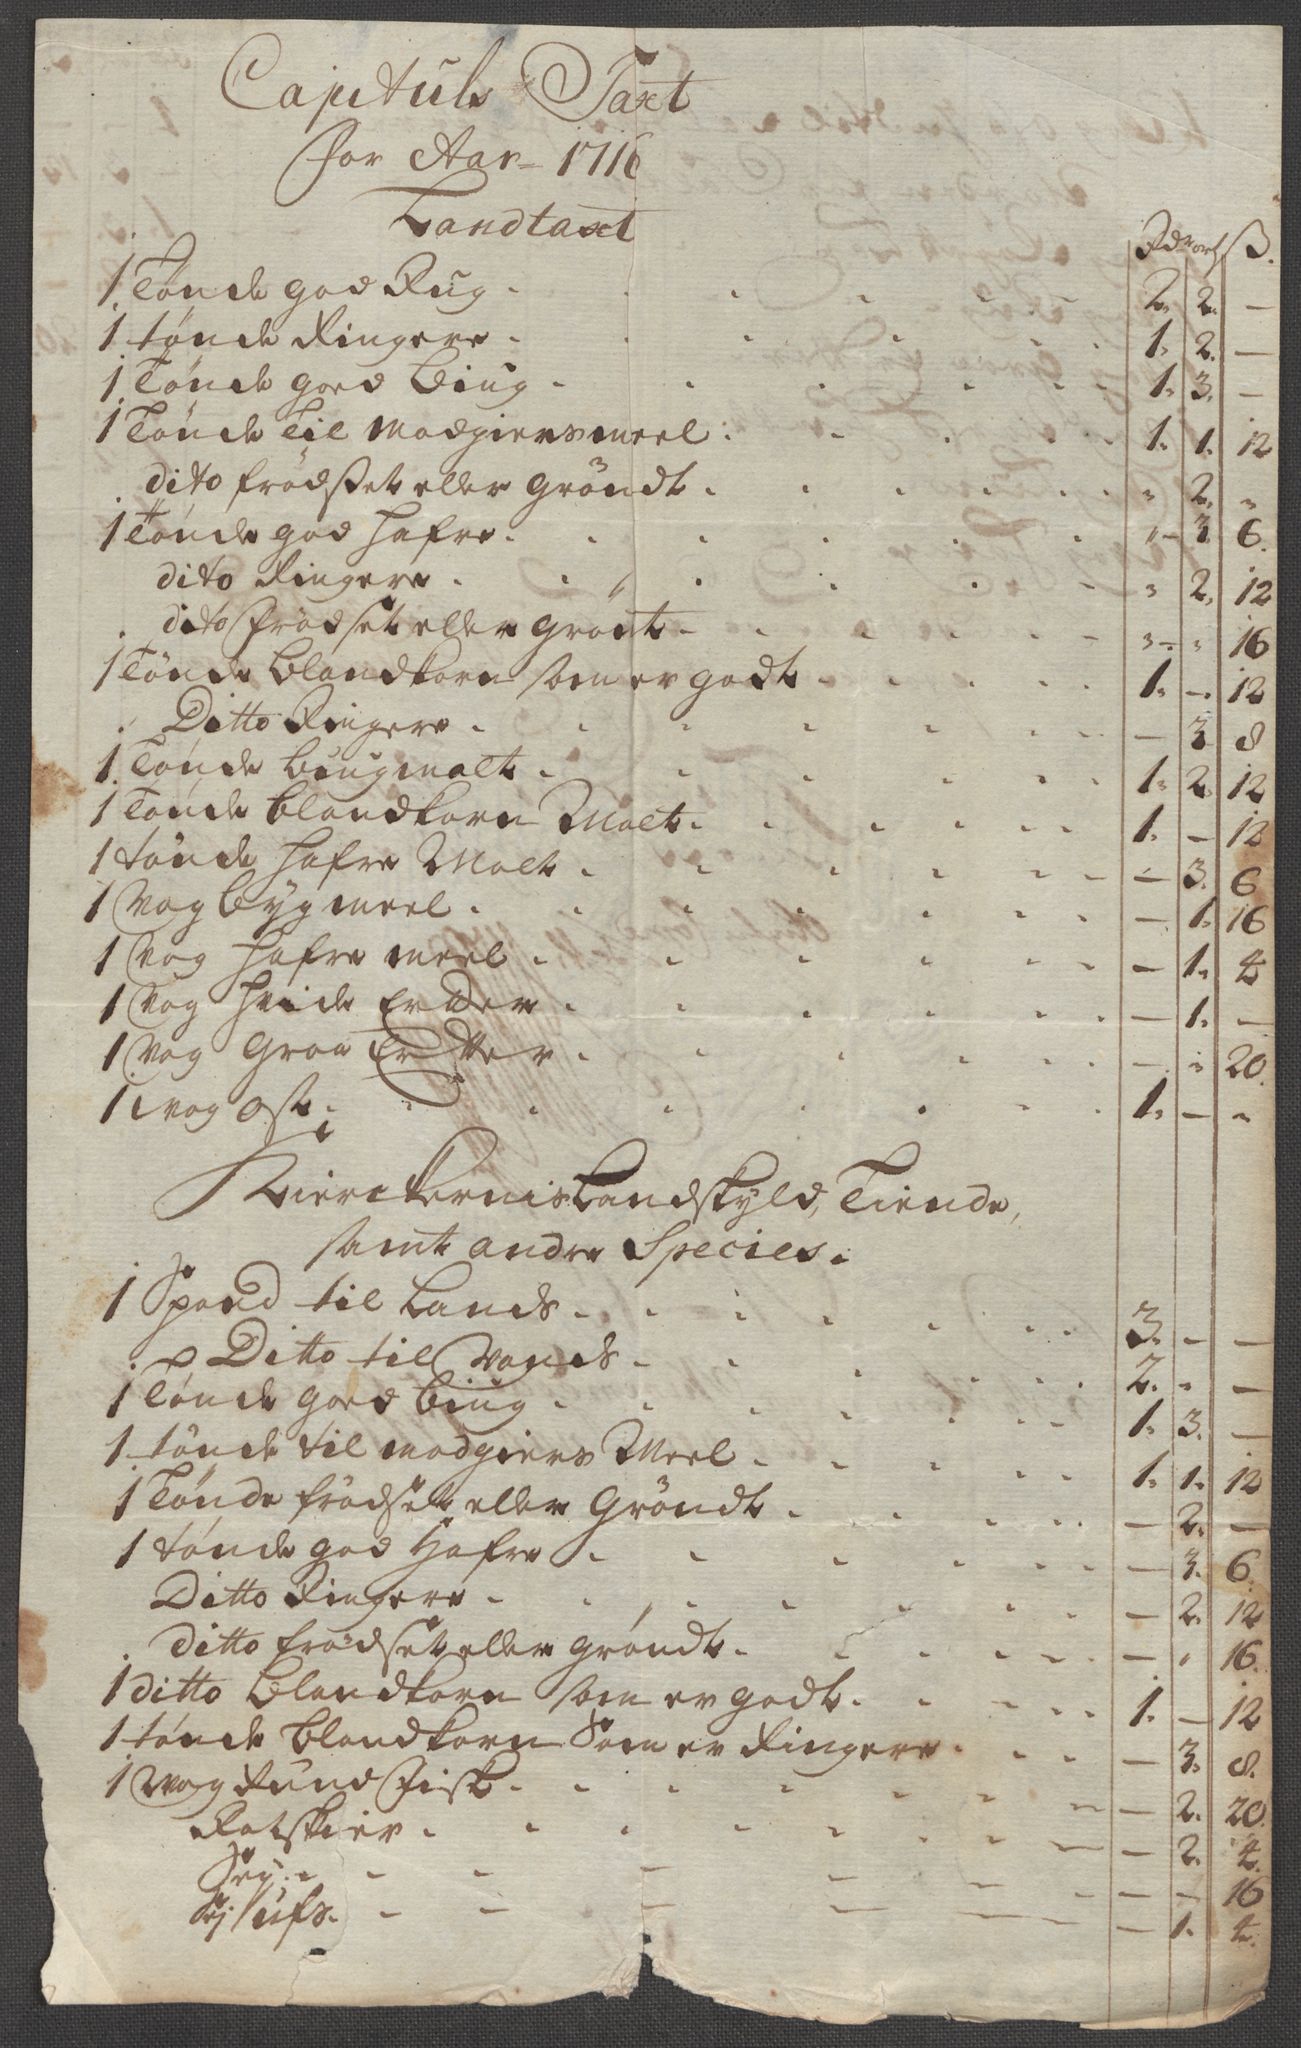 Capituls Taxt
for Aar 1716
Landtaxt
Rd ort ß.
1 Tønde god Rug 2. 2. —
1 tønde Ringere 1. 2. —
1 Tønde goed Biug 1. 3. —
1 Tønde til madgiersmeel 1. 1. 12
dito frødset eller Grøndt " 2. "
1 Tønde god Hafre " 3. 6.
dito Ringere " 2. 12
dito frødset eller Grønt " " 16
1 Tønde Blandkorn som er godt 1. — 12
Ditto Ringere — 3 8
1 Tønde Biugmalt 1. 2. 12
1 Tønde Blandkorn Malt 1. — 12
1 tønde Hafre Malt — 3. 6
1 Vog Bygmeel — 1. 16
1 Vog Hafre meel — 1. 4
1 Vog Hvide Erter — 1. —
1 Vog Graa Erter — " 20.
1 Vog Ost 1. — "
Landskyld, Tiende,
samt andre Species.
1 Spand til Lands 3. — —
Ditto til Vands 2. " —
1 Tønde goed Biug 1. 3. —
1 tønde til madgiers Meel 1. 1. 12
1 Tønde frødset eller Grøndt — 2. —
1 tønde god Hafre — 3. 6.
Ditto Ringere — 2. 12
Ditto frødset eller Grøndt — " 16.
1 ditto Blandkorn som er godt 1. — 12
1 tønde Blandkorn Som er Ringere — 3. 8.
1 Vog Rund Fisk — 2. 20.
Ratskier — 2. 4.
Sey — — 16
— 1. 4.